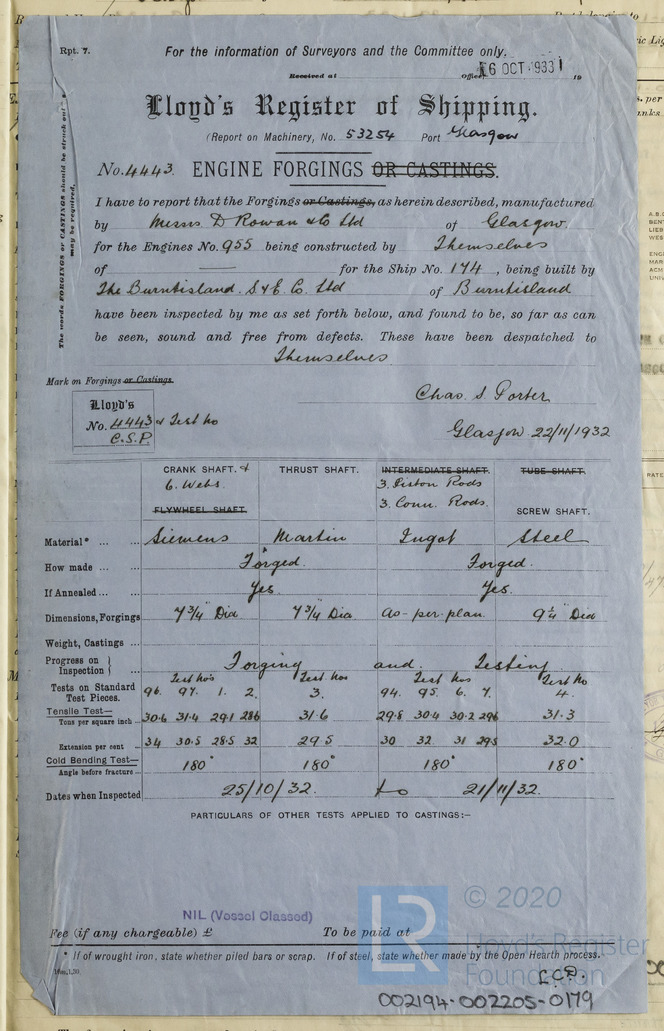 Rpt. 7.
For the information of Surveyors and the Committee only.
Received at Office 16 OCT 1933 19
Lloyd's Register of Shipping.
(Report on Machinery, No. 53254 Port Glasgow
No. 4443. ENGINE FORGINGS OR CASTINGS.
The words FORGINGS or CASTINGS should be struck out as may be required.
I have to report that the Forgings or Castings, as herein described, manufactured
by Messrs. D Rowan & Co Ltd of Glasgow.
for the Engines No. 955 being constructed by Themselves
of —— for the Ship No. 174, being built by
The Burntisland. S & E. Co. Ltd of Burntisland
have been inspected by me as set forth below, and found to be, so far as can
be seen, sound and free from defects. These have been despatched to
Themselves
Mark on Forgings or Castings.
Chas. S. Porter
Lloyd's
No. 4443 & Test No
C.S.P.
Glasgow 22/11/1932
CRANK SHAFT. & THRUST SHAFT. INTERMEDIATE SHAFT. TUBE SHAFT.
6. Webs. 3. Piston Rods
3. Conn. Rods.
FLYWHEEL SHAFT SCREW SHAFT.
Material* ... ... Siemens Martin Ingot Steel
How made ... ... Forged. Forged.
If Annealed ... Yes. Yes.
Dimensions, Forgings 7 3/4" Dia 7 3/4" Dia As-per-plan. 9 1/4" Dia
Weight, Castings ...
Progress on Inspection } ... Forging and Testing
Test Nos Test Nos Test Nos Test No
Tests on Standard Test Pieces. 96. 97. 1. 2. 3. 94. 95. 6. 7. 4.
Tensile Test—
Tons per square inch 30.6 31.4 29.1 28.6 31.6 29.8 30.4 30.2 29.6 31.3
Extension per cent 34 30.5 28.5 32 29.5 30 32 31 29.5 32.0
Cold Bending Test—
Angle before fracture 180° 180° 180° 180°
Dates when Inspected 25/10/32. to 21/11/32.
PARTICULARS OF OTHER TESTS APPLIED TO CASTINGS:—
NIL (Vessel Classed)
Fee (if any chargeable) £ To be paid at
* If of wrought iron, state whether piled bars or scrap. If of steel, state whether made by the Open Hearth process.
© 2020
LR
Lloyd's Register
Foundation
002194-002205-0179